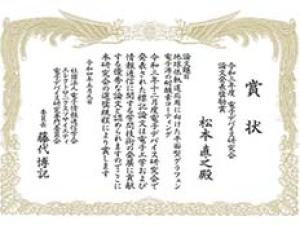 賞状
令和三年度 電子デバイス研究会
論文発表奨励賞
松本 直之殿
論文題目
地球低軌道応用に向けた平面型グラフェン
電子源の耐酸素コーティング
令和三年十一月度電子デバイス研究会で
発表された標記論文は電子工学および
情報通信に関する学問技術の発展に貢献
する優秀な論文と認められますのでここに
本研究会の選奨規程により賞します
令和四年五月
社団法人電子情報通信学会
エレクトロニクスソサイエティ
電子デバイス研究専門委員会
委員長 藤代 博記